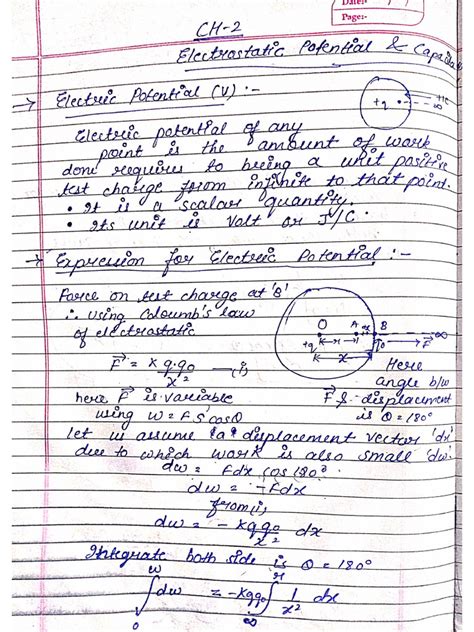 Date:- / /
Page:-
CH-2
Electrostatic Potential & Capacita
→ Electric Potential (V) :-
+q +1C ∞
Electric potential of any
point is the amount of work
done requires to bring a unit positive
test charge from infinite to that point.
• It is a scalar quantity.
• Its unit is Volt or J/C.
→ Expression for Electric Potential :-
Force on test charge at 'B'
∴ using Coloumb's law
of electrostatic
O A dx B ∞
+q r q0 F
x
F = K q.q0 / x² —(i)
Here
angle b/w
F & displacement
is θ = 180°
here F is variable
using W = F S cosθ
let us assume 'a' displacement vector 'dx'
due to which work is also small 'dw'.
dw = Fdx cos 180°
dw = -Fdx
from (i)
dw = - Kqq0 / x² dx
Integrate both side is θ = 180°
∫₀ʷ dw = -Kqq0 ∫∞ʳ 1/x² dx